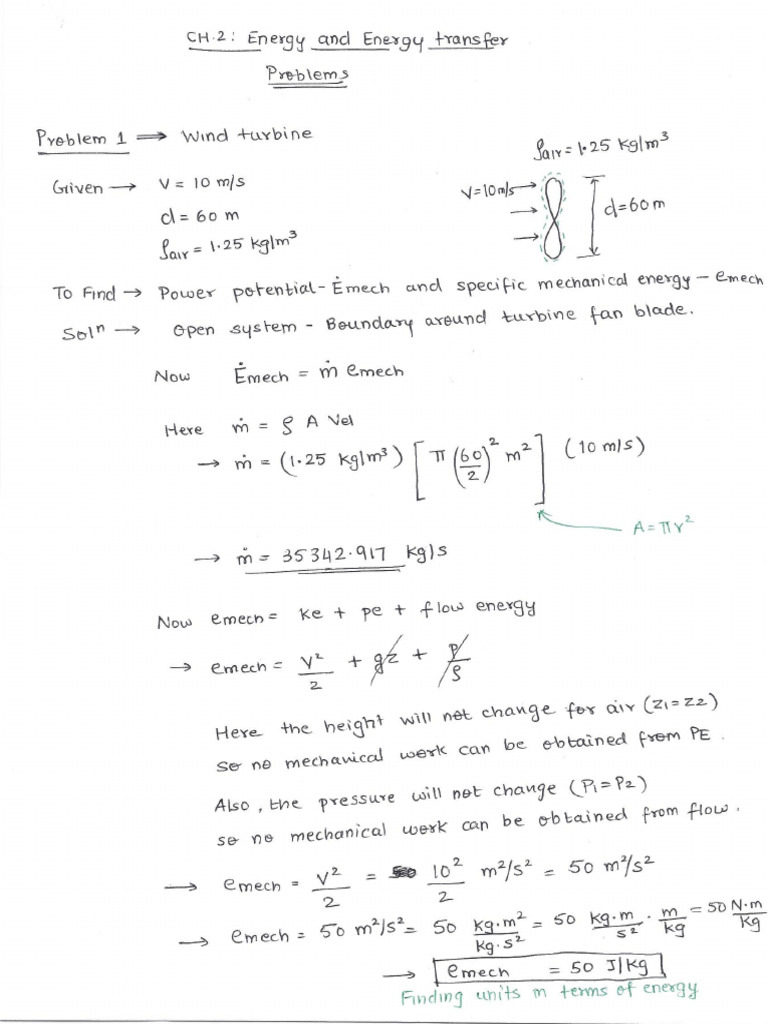 CH.2: Energy and Energy transfer
Problems
Problem 1 ⟹ Wind turbine
Given → V = 10 m/s
d = 60 m
ρair = 1.25 kg/m³
ρair = 1.25 kg/m³
V=10m/s
d=60m
To Find → Power potential - Ėmech and specific mechanical energy - emech
Solⁿ → Open system - Boundary around turbine fan blade.
Now Ėmech = ṁ emech
Here ṁ = ρ A Vel
→ ṁ = (1.25 kg/m³) [π (60/2)² m²] (10 m/s)
A = πr²
→ ṁ = 35342.917 kg/s
Now emech = ke + pe + flow energy
→ emech = V²/2 + gz + P/ρ
Here the height will not change for air (z1=z2)
so no mechanical work can be obtained from PE.
Also, the pressure will not change (P1=P2)
so no mechanical work can be obtained from flow.
→ emech = V²/2 = 10²/2 m²/s² = 50 m²/s²
→ emech = 50 m²/s² = 50 kg·m²/kg·s² = 50 kg·m/s² · m/kg = 50 N·m/kg
→ emech = 50 J/kg
Finding units in terms of energy